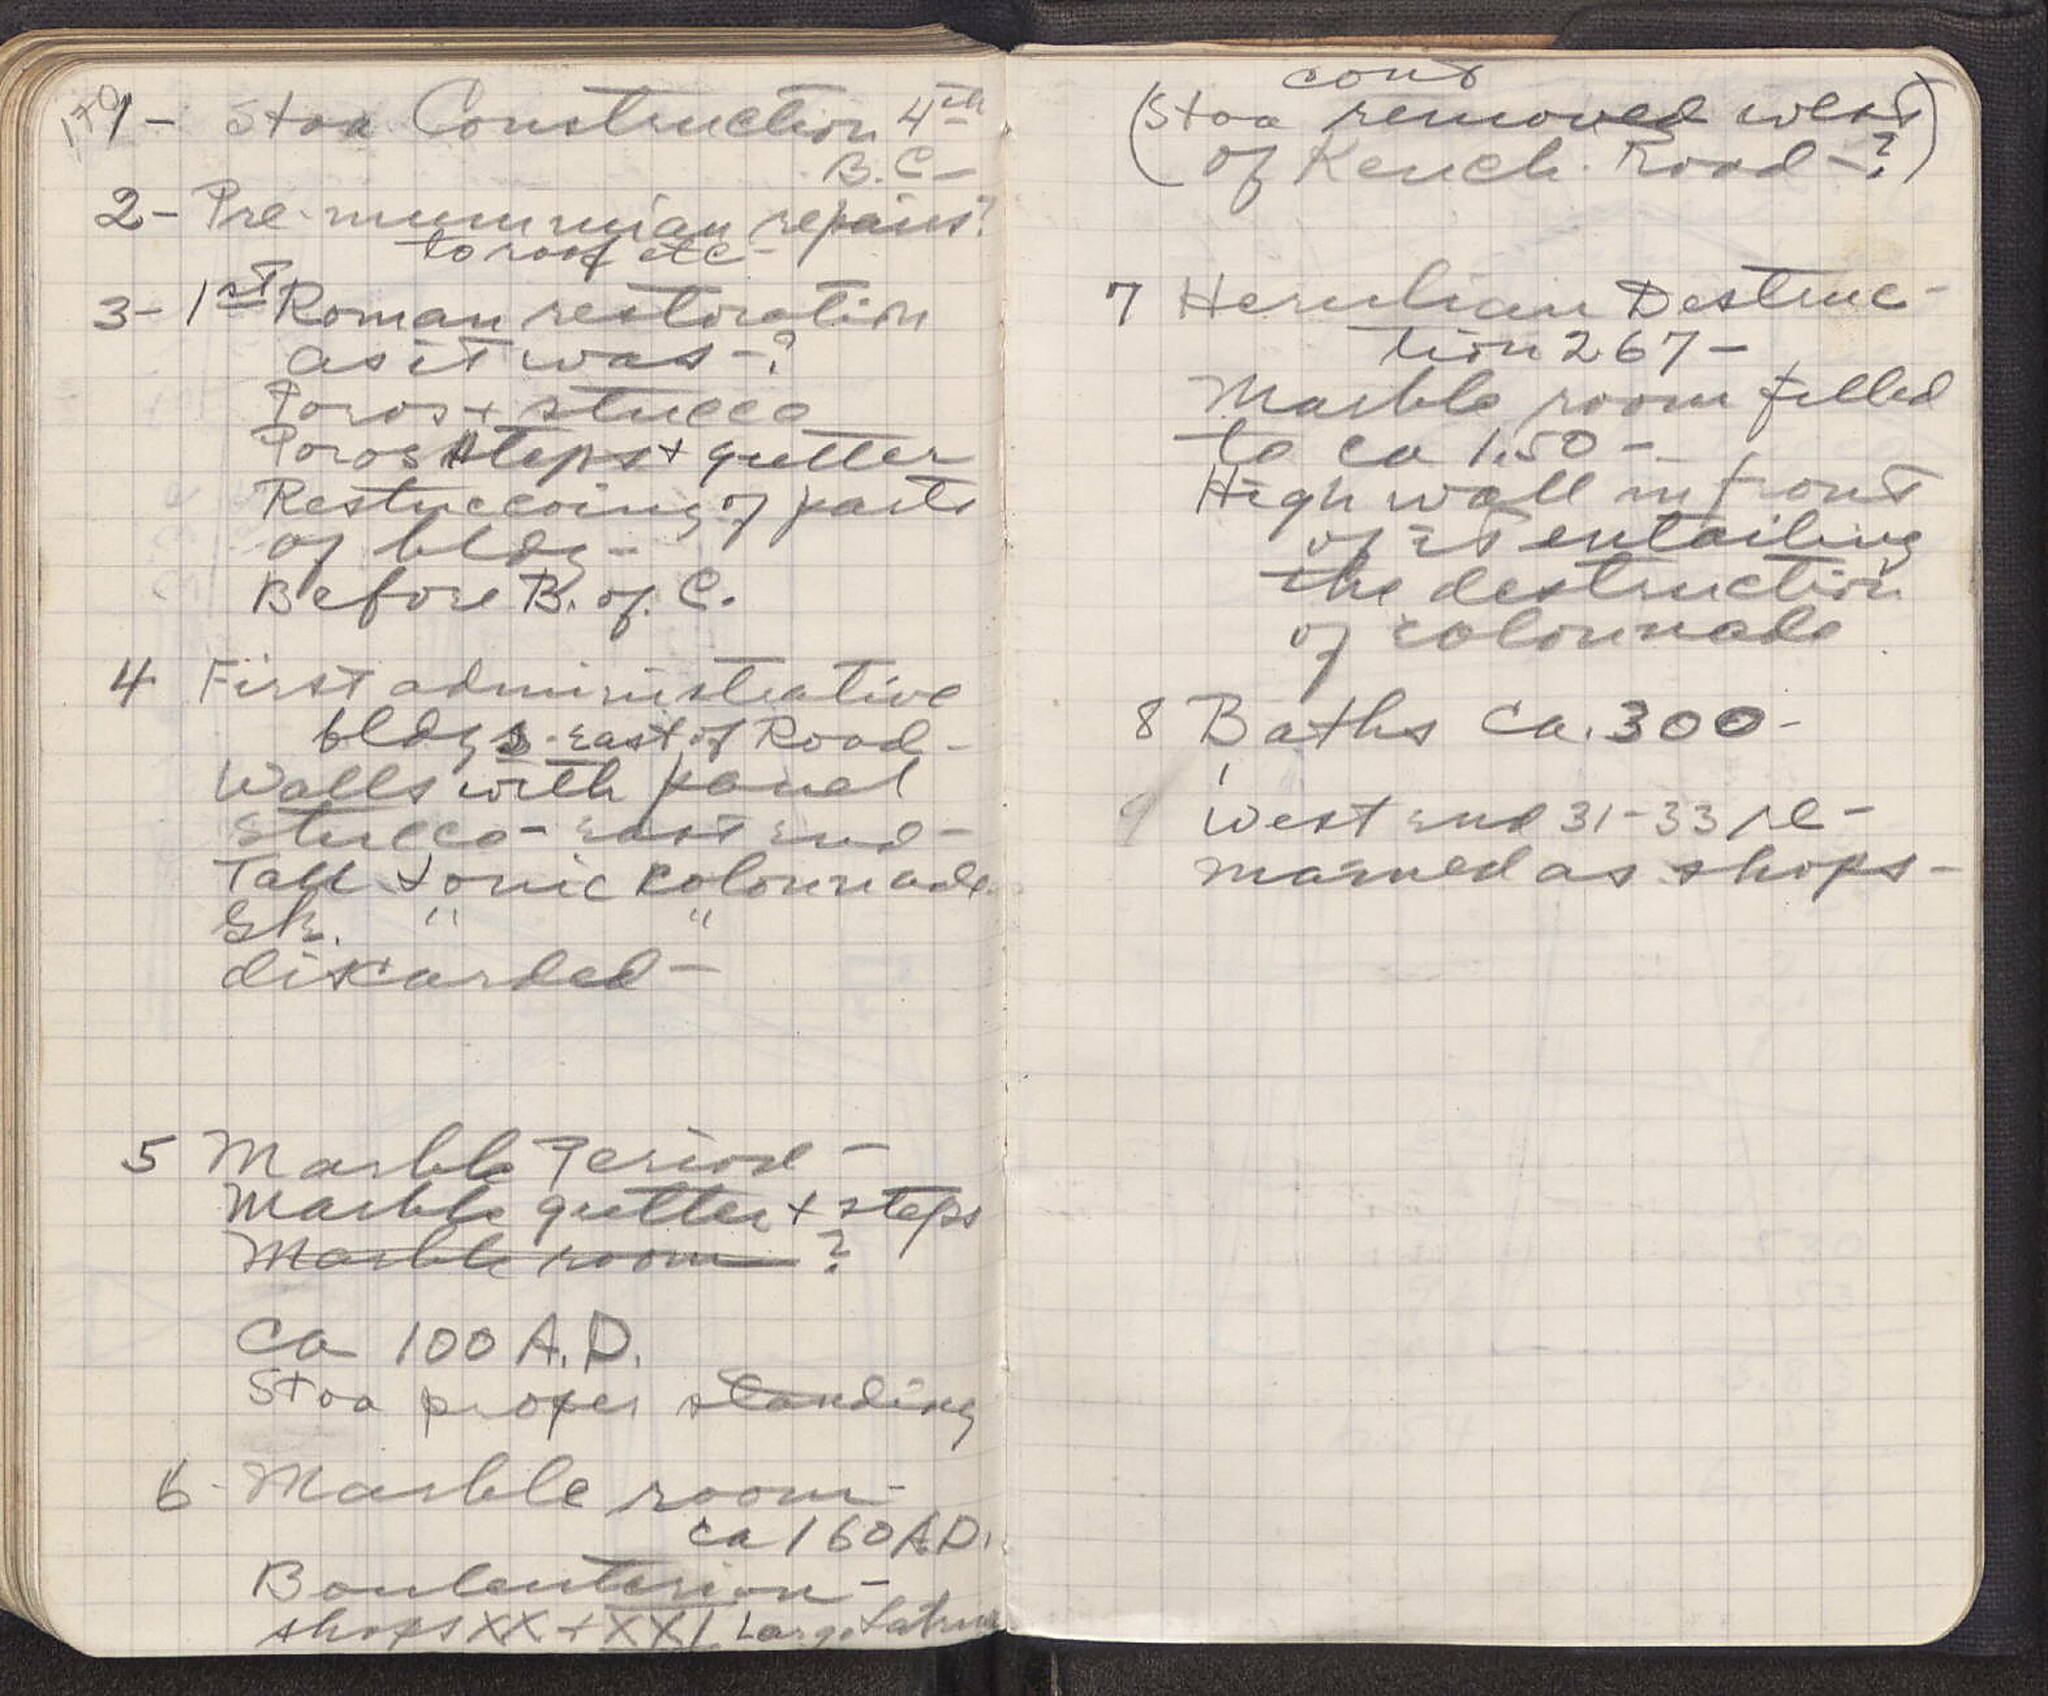 179
1- Stoa Construction 4th
B.C-
2- Pre-mummian repairs?
to roof etc-
3- 1st Roman restoration
as it was-?
Poros + stucco
Poros steps + gutter
Restuccoing of parts
of bldg-
Before B. of. C.
4 First administrative
bldgs. east of Road-
Walls with panel
stucco- east end-
Tall Ionic Colonnade
Gk. " "
discarded-
5 Marble Period-
Marble gutter + steps
Marble room ?
Ca 100 A.D.
Stoa proper standing
6- Marble room-
ca 160 A.D.
Bouleuterion-
shops XX + XXI Large Latrine
cont
(Stoa removed west
of Kench. Road-?)
7 Herulian Destruc-
tion 267-
Marble room filled
to ca 1.50-
High wall in front
of it entailing
the destruction
of colonnade
8 Baths Ca. 300-
9 West end 31-33 re-
mained as shops-